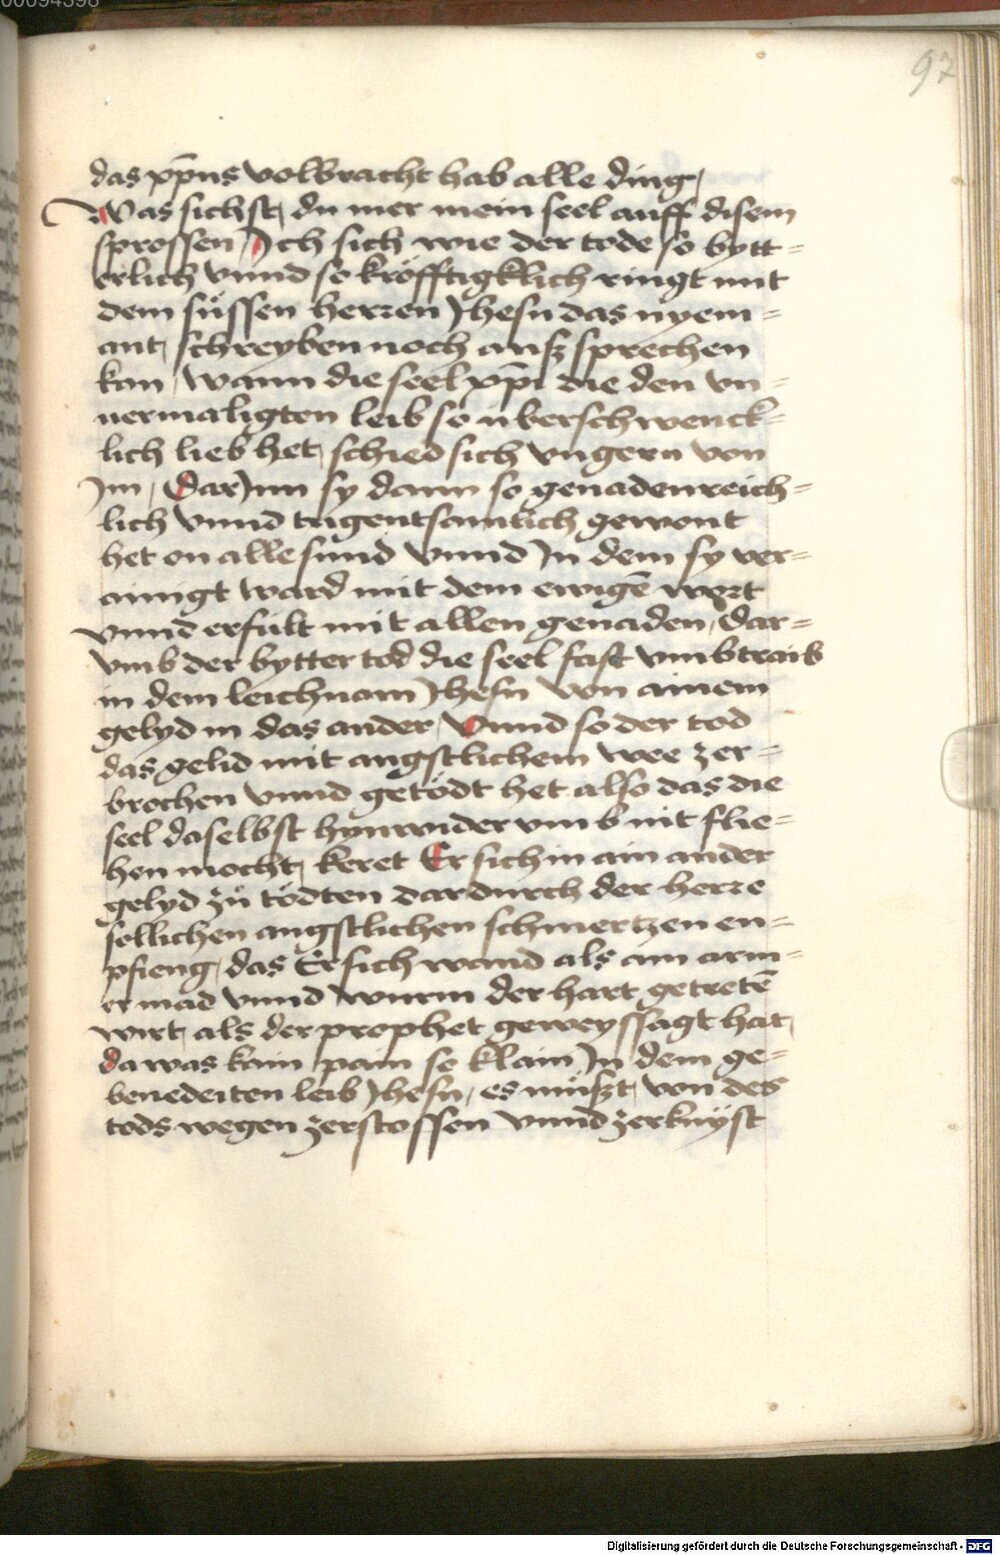 00094398
97
das xp̄us volbracht hab alle ding,
Was sichst, du mer mein seel auff disem
sprossen, Ich sich wie der tode so bytt=
erlich vnnd so kröfftigklich ringt mit
dem süssen herren Jhesu das nyem=
ant, schreyben noch aussprechen
kan, wann die seel xp̄i die den vn=
uermaligten leib so überschwenck=
lich lieb het, schied sich vngern von
Im, dar Inn sy dann so genadenreich=
lich vnnd tugentsamlich gewont
het on alle sünd vnnd In dem sy ver=
ainigt ward mit dem ewigē wort
vnnd erfült mit allen genaden, dar=
vmb der bytter tod die seel fast vmbtraib
in dem leichnam Jhesu von ainem
gelyd in das ander, Vnnd so der tod
das gelid mit angstlichem wee zer=
brochen vnnd getödt het also das die
seel daselbst hynwider vmb nit flie=
hen mocht, keret Er sich in ain ander
gelyd zů tödten dardurch der herre
sollichen angstlichen schmertzen en=
pfieng, das Er sich wand als ain arm=
er mad vnnd wurm der hart getretē
wirt, als der prophet geweyssagt hat,
da was kain pain so klain In dem ge=
benedeiten leib Jhesu, es müßt, von des
tods wegen zerstossen vnnd zerknyst
Digitalisierung gefördert durch die Deutsche Forschungsgemeinschaft - DFG